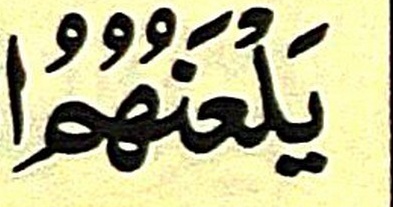 يَلْعَنُهُمُ ا